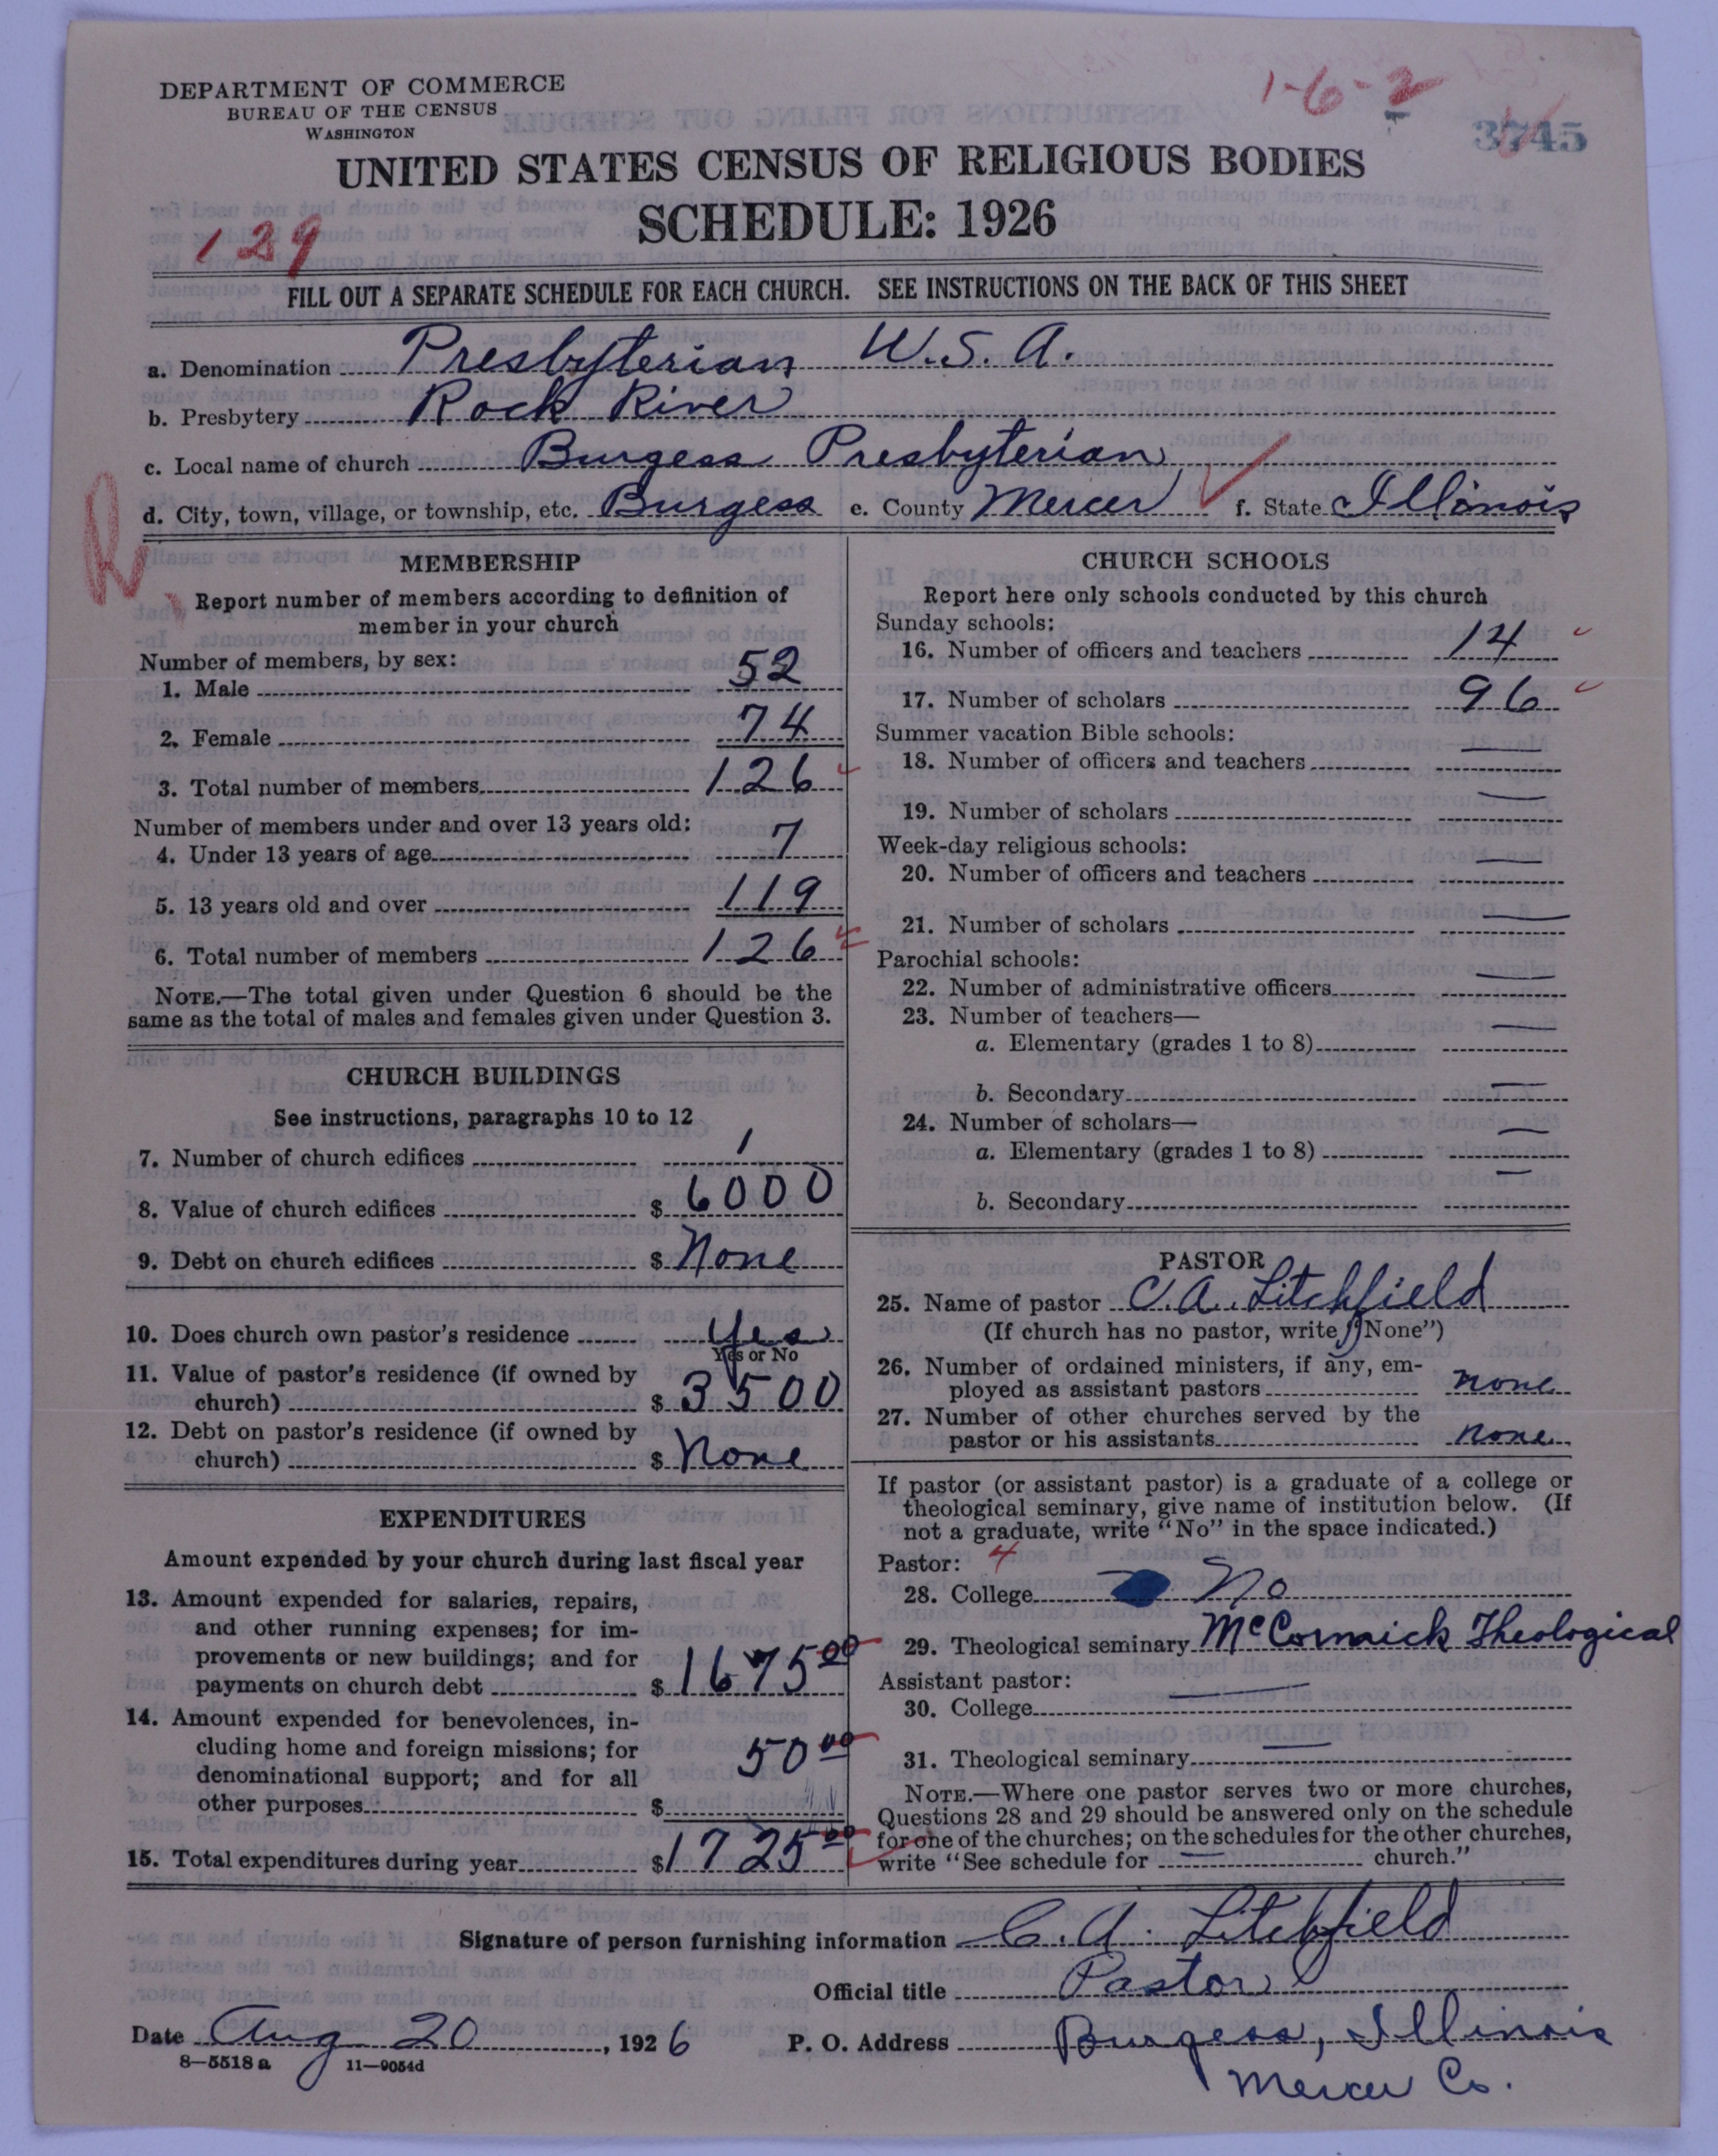 DEPARTMENT OF COMMERCE
BUREAU OF THE CENSUS
WASHINGTON
1-6-2
3745
UNITED STATES CENSUS OF RELIGIOUS BODIES
SCHEDULE: 1926
129
FILL OUT A SEPARATE SCHEDULE FOR EACH CHURCH. SEE INSTRUCTIONS ON THE BACK OF THIS SHEET
a. Denomination Presbyterian U.S.A.
b. Presbytery Rock River
c. Local name of church Burgess Presbyterian
d. City, town, village, or township, etc. Burgess e. County Mercer f. State Illinois
R
MEMBERSHIP
Report number of members according to definition of
member in your church
Number of members, by sex:
1. Male 52
2. Female 74
3. Total number of members 126
Number of members under and over 13 years old:
4. Under 13 years of age 7
5. 13 years old and over 119
6. Total number of members 126
NOTE.—The total given under Question 6 should be the
same as the total of males and females given under Question 3.
CHURCH BUILDINGS
See instructions, paragraphs 10 to 12
7. Number of church edifices 1
8. Value of church edifices $ 6000
9. Debt on church edifices $ None
10. Does church own pastor's residence Yes
Yes or No
11. Value of pastor's residence (if owned by
church) $ 3500
12. Debt on pastor's residence (if owned by
church) $ None
EXPENDITURES
Amount expended by your church during last fiscal year
13. Amount expended for salaries, repairs,
and other running expenses; for im-
provements or new buildings; and for
payments on church debt $ 1675 00
14. Amount expended for benevolences, in-
cluding home and foreign missions; for
denominational support; and for all
other purposes $ 50 00
15. Total expenditures during year $ 1725 00
CHURCH SCHOOLS
Report here only schools conducted by this church
Sunday schools:
16. Number of officers and teachers 14
17. Number of scholars 96
Summer vacation Bible schools:
18. Number of officers and teachers —
19. Number of scholars —
Week-day religious schools:
20. Number of officers and teachers —
21. Number of scholars —
Parochial schools:
22. Number of administrative officers —
23. Number of teachers—
a. Elementary (grades 1 to 8) —
b. Secondary —
24. Number of scholars—
a. Elementary (grades 1 to 8) —
b. Secondary —
PASTOR
25. Name of pastor C. A. Litchfield
(If church has no pastor, write "None")
26. Number of ordained ministers, if any, em-
ployed as assistant pastors none
27. Number of other churches served by the
pastor or his assistants none
If pastor (or assistant pastor) is a graduate of a college or
theological seminary, give name of institution below. (If
not a graduate, write "No" in the space indicated.)
Pastor: 4
28. College No
29. Theological seminary McCormick Theological
Assistant pastor:
30. College —
31. Theological seminary —
NOTE.—Where one pastor serves two or more churches,
Questions 28 and 29 should be answered only on the schedule
for one of the churches; on the schedules for the other churches,
write "See schedule for — church."
Signature of person furnishing information C. A. Litchfield
Official title Pastor
Date Aug 20, 1926 P. O. Address Burgess, Illinois
8—5518 a 11—9054d
Mercer Co.